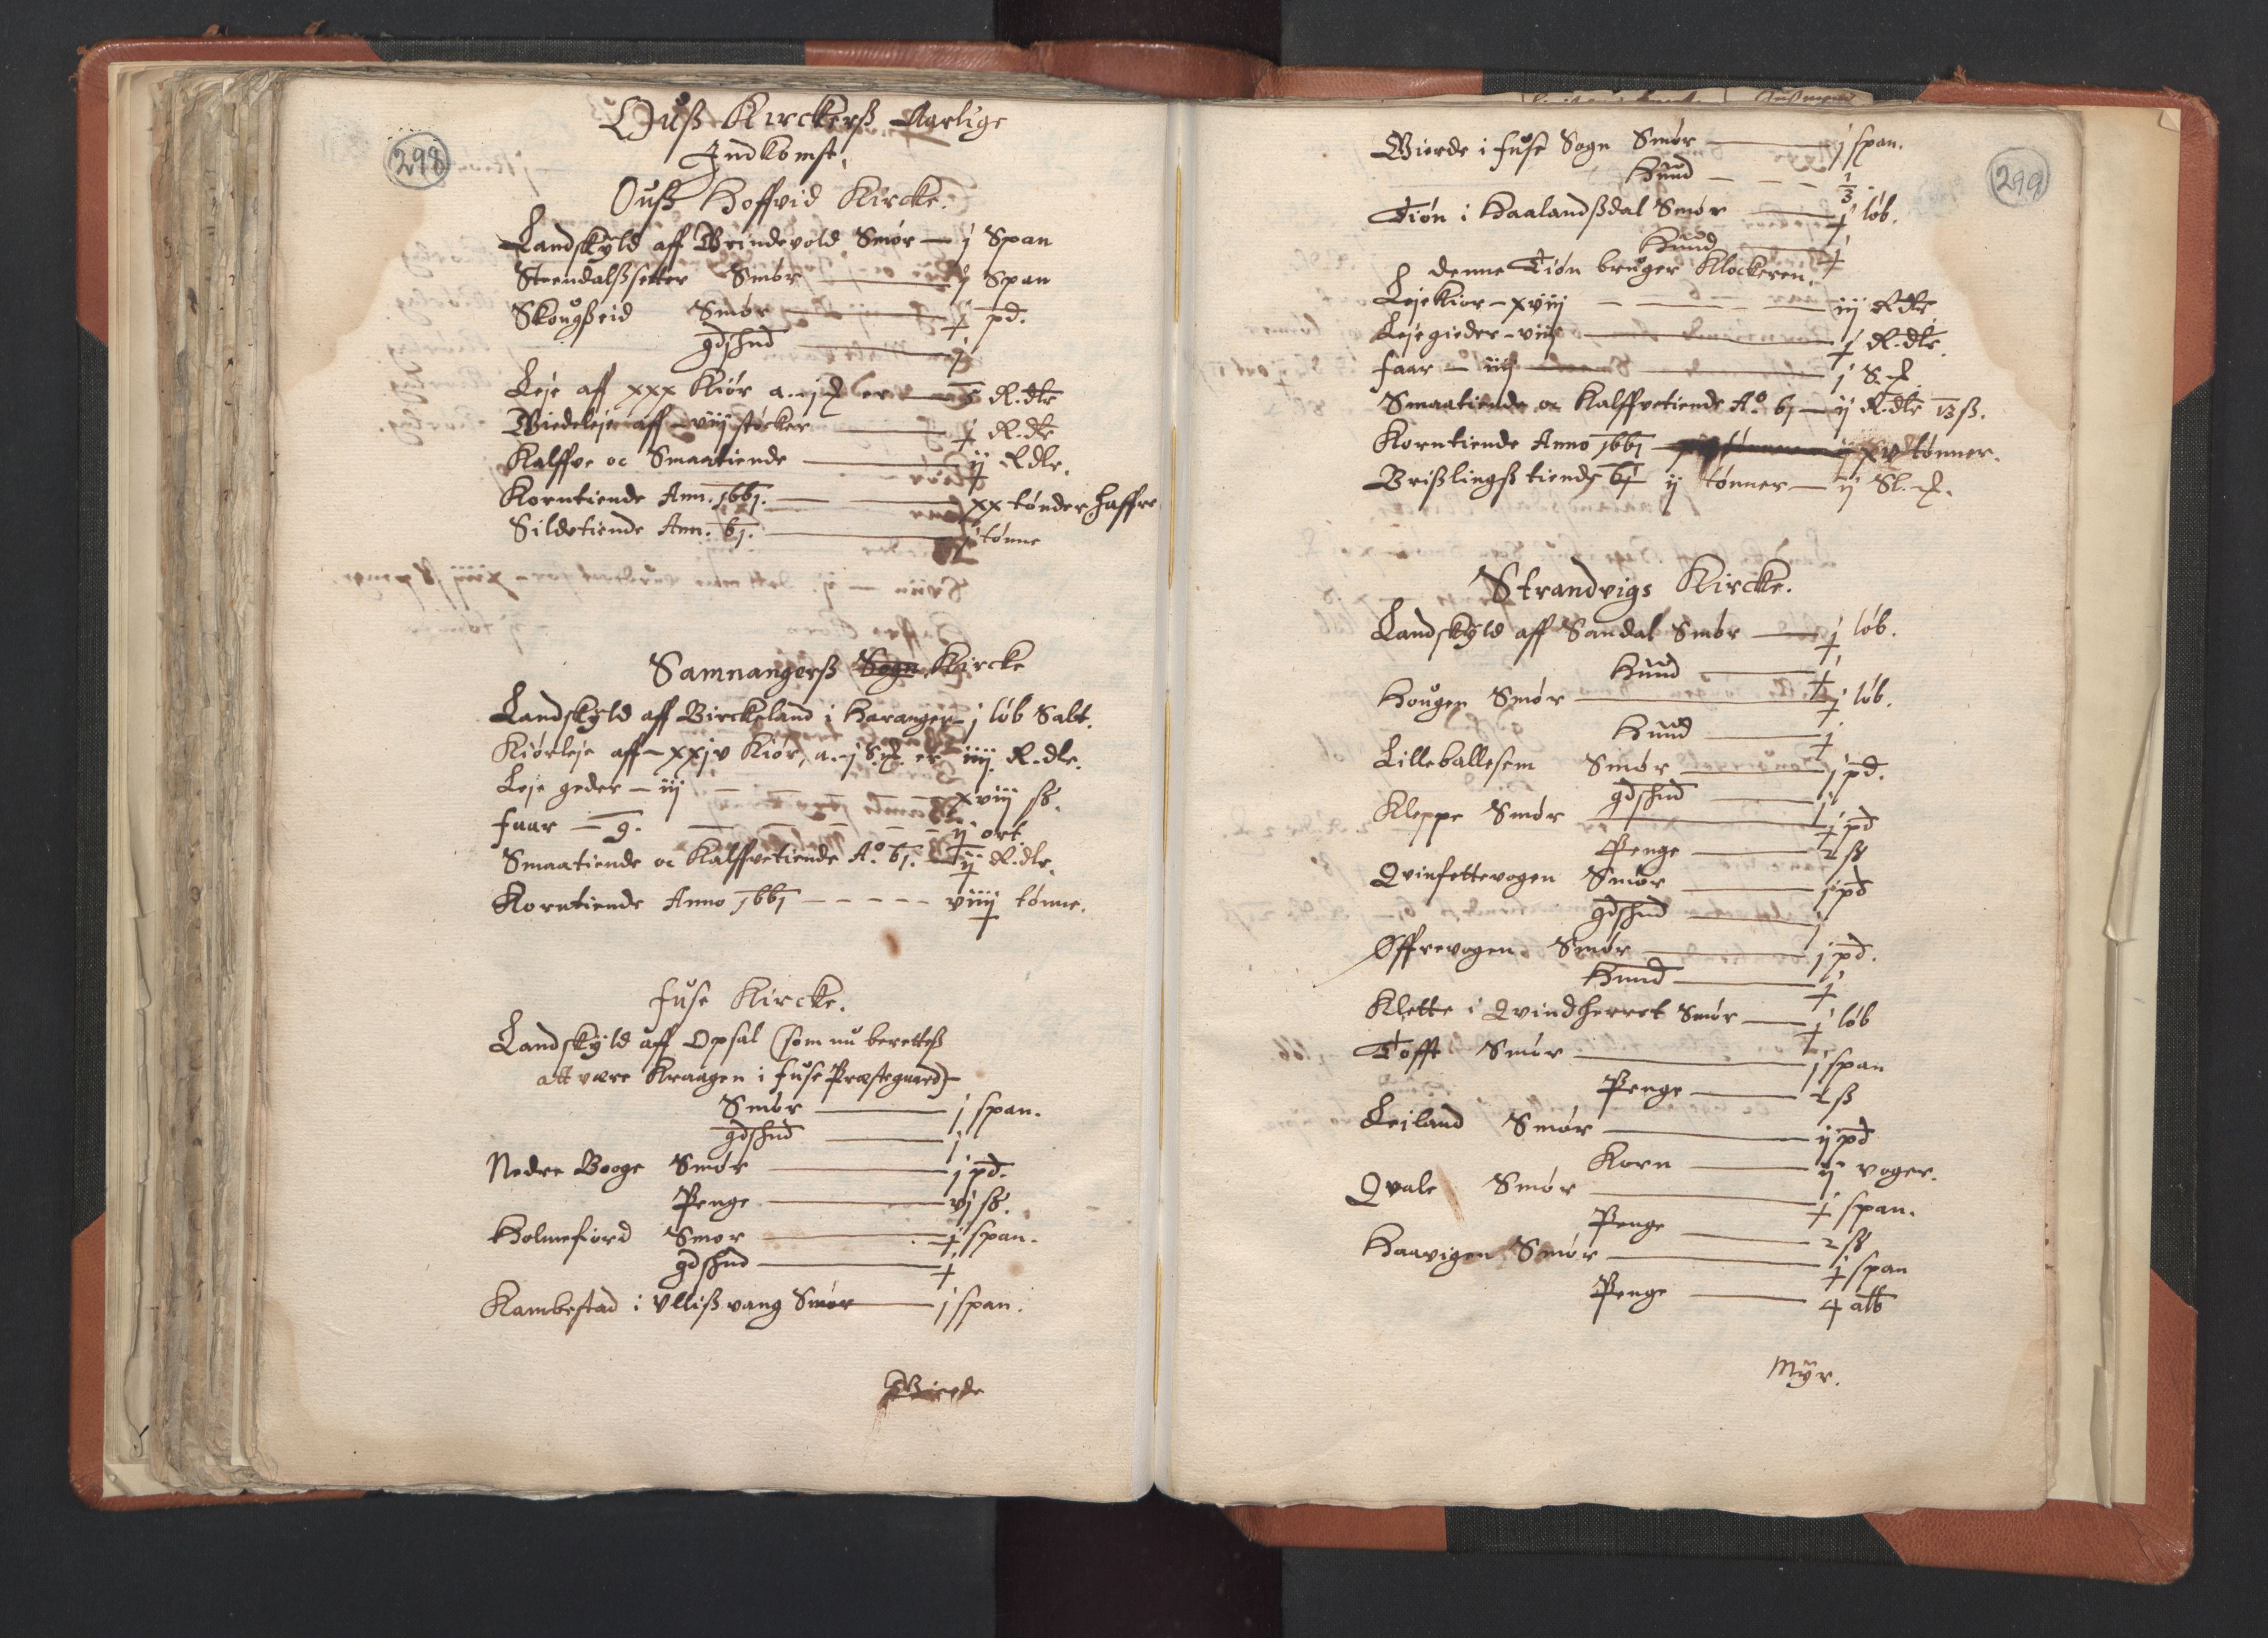 298
Ouß Kirckerß Aarlige
Indkomst,
Ouß Hoffvid Kircke.
Landskyld aff Brindevold Smør — j Span
Steendalßsetter Smør — j Span
Skougßeid Smør — j pd.
gdshud — j
Leje aff xxx Kiør a. j  er — R.dlr
Biedeleje aff — viij støcker — R.dlr
Kalffve oc Smaatiende — ij Rdlr.
Korntiende Ann. 1661. — xx tønder haffre
Sildetiende Ann. 61. — j tønne
Samnangerß Sogn Kircke
Landskyld aff Birckeland i Haranger — j løb Salt.
Kiørleje aff — xxjv Kiør, a. j S. er iiij. R.dlr.
Leje geder — iij — xviij sß.
faar — 9. — ij ort
Smaatiende oc Kalffvetiende A.o 61. — ij R.dlr.
Korntiende Anno 1661 - - - - - viiij tønne.
fuse Kircke.
Landskyld aff Opsal (som nu beretteß
att være Kraagen i fuse Præstegaard)
Smør — j span.
gdshud — j
Nedre Booge Smør — j pd.
Penge — vj sß.
Holmefiord Smør — j span.
gdshud — j
Kambestad i Ulliß vang Smør — j span.
Gierde
299
Gierde i fuse Sogn Smør — j span.
Huud — 1/3.
Tiøn i Haalandßdal Smør — j løb.
Huud — j
denne Tiøn bruger Klockeren.
Leje Kior — xviij — iij R.dlr
Leje gieder — viij — j R.dlr.
faar — iiij — j S.
Smaatiende oc Kalffvetiende A.o 61 — ij R.dlr 13 ß.
Korntiende Anno 1661 — xv tønner.
Brißlingß tiende 61 ij tønner — ij Sl.
Strandvigs Kircke.
Landskyld aff Sandal Smør — j løb.
Huud — j
Hougen Smør — j løb.
Huud — j
Lilleballesem Smør — j pd.
gdshud — j
Kleppe Smør — j pd
Penge — 2 ß
Qvinsettevogen Smør — j pd
gdshud — j
Øffrevogen Smør — j pd.
Huud — j
Klette i Qvindherret Smør — j løb
Tofft Smør — j span
Penge — 2 ß
Leiland Smør — ij pd
Korn — ij voger.
Qvale Smør — j span.
Penge — 2 ß
Haavigen Smør — j span
Penge — 4 alb
Myr.